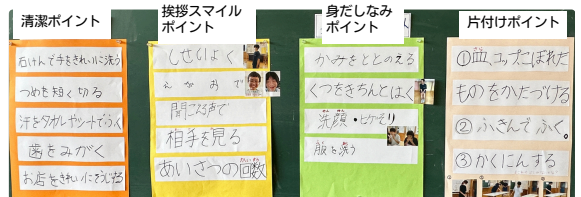 清潔ポイント
石けんで手をきれいに洗う
つめを短く切る
汗をタオルやットでふく
歯をみがく
お店をきれいにそうじする
挨拶スマイル
ポイント
しせいよく
えがおで
聞こえる声で
相手を見る
あいさつの回数
身だしなみ
ポイント
かみをととのえる
くつをきちんとはく
洗顔・ヒゲそり
服を洗う
片付けポイント
①皿、コップ、こぼれた
ものをかたづける
②ふきんでふく。
③かくにんする